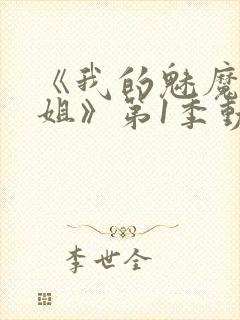 《我的魅魔
姐》第1季動
李世全